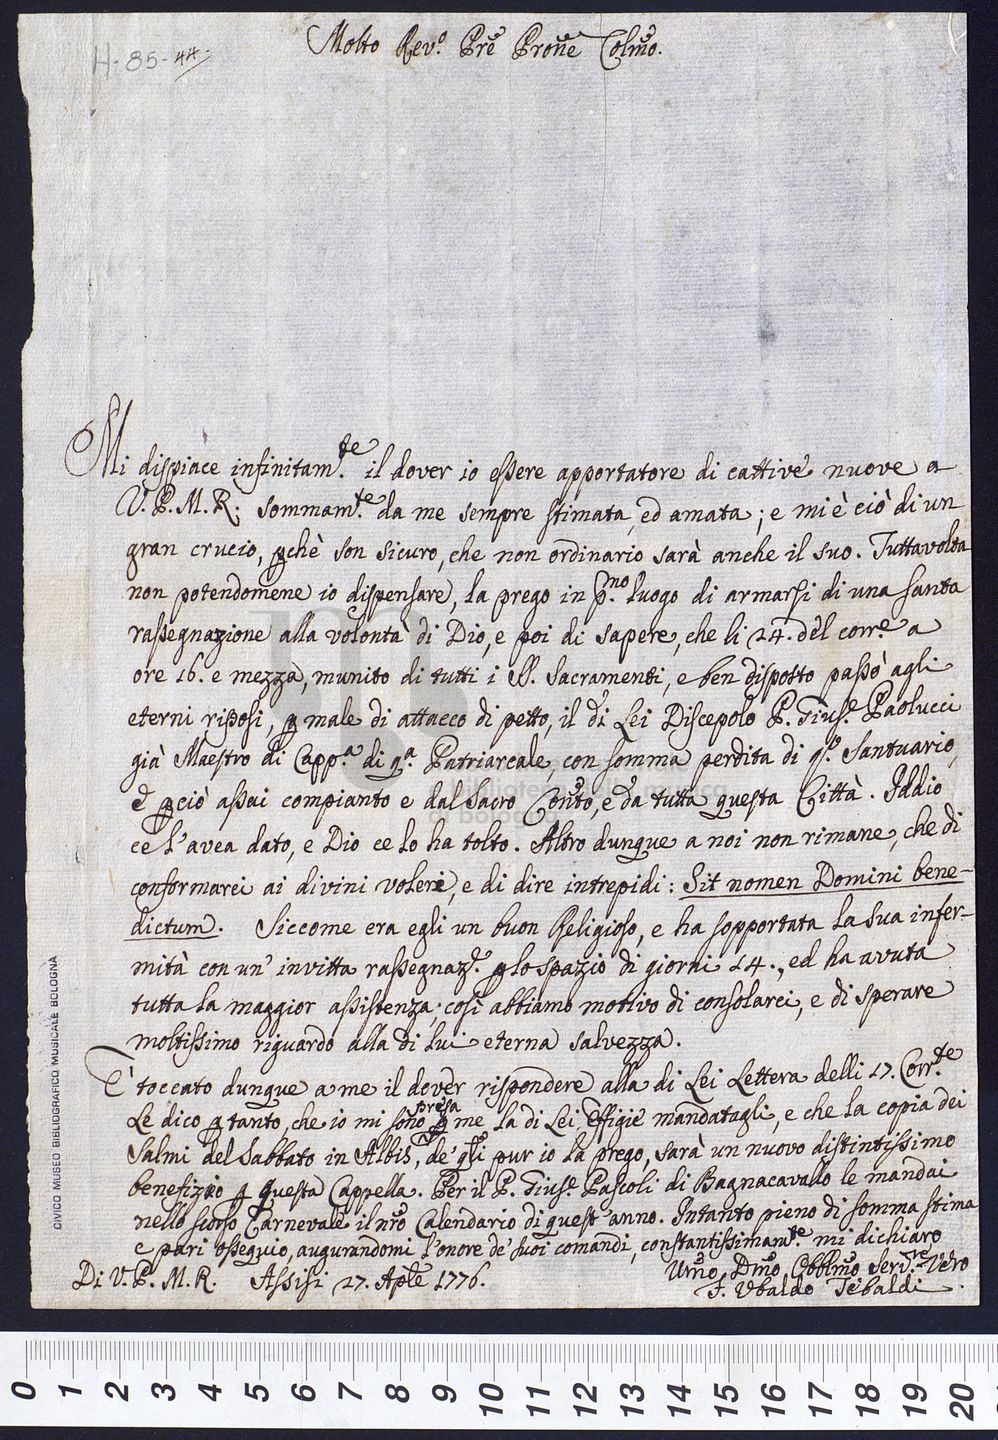 H-85-44-
Molto Rev.o Pre Prone Colmo.
Mi dispiace infinitam.te il dover io essere apportatore di cattive nuove a
V. P. M. R. sommam.te da me sempre stimata, ed amata; e mi è ciò di un
gran crucio, pchè son sicuro, che non ordinario sarà anche il suo. Tuttavolta
non potendomene io dispensare, la prego in p.mo luogo di armarsi di una santa
rassegnazione alla volontà di Dio, e poi di sapere, che li 24. del corr.e a
ore 16. e mezza, munito di tutti i SS. Sacramenti, e ben disposto passò agli
eterni riposi, p male di attacco di petto, il di Lei Discepolo P. Gius.e Paolucci
già Maestro di Capp.a di q.a Patriarcale, con somma perdita di q.o Santuario,
è pciò assai compianto e dal Sacro Conto, e da tutta questa Città. Iddio
ce l'avea dato, e Dio ce lo ha tolto. Altro dunque a noi non rimane, che di
conformarci ai divini voleri, e di dire intrepidi: Sit nomen Domini bene-
dictum. Siccome era egli un buon Religioso, e ha sopportata la sua infer-
mità con un' invitta rassegnaz.e p lo spazio di giorni 14., ed ha avuta
tutta la maggior assistenza; così abbiamo motivo di consolarci, e di sperare
moltissimo riguardo alla di lui eterna salvezza.
È toccato dunque a me il dover rispondere alla di Lei Lettera delli 17. Corr.te
Le dico p tanto, che io mi sono presa p me la di Lei Effigie mandatagli, e che la copia dei
Salmi del Sabbato in Albis, de' qli pur io la prego, sarà un nuovo distintissimo
benefizio p questa Cappella. Per il P. Gius.e Pascoli di Bagnacavallo le mandai
nello scorso Carnevale il nro Calendario di quest'anno. Intanto pieno di somma stima
e pari ossequio, augurandomi l'onore de' suoi comandi, constantissimam.te mi dichiaro
Di V. P. M. R. Assisi 27. Aple 1776.
Umo, Dmo, Obblmo Serv.re Vero
F. Ubaldo Tebaldi
CIVICO MUSEO BIBLIOGRAFICO MUSICALE BOLOGNA
0 1 2 3 4 5 6 7 8 9 10 11 12 13 14 15 16 17 18 19 20